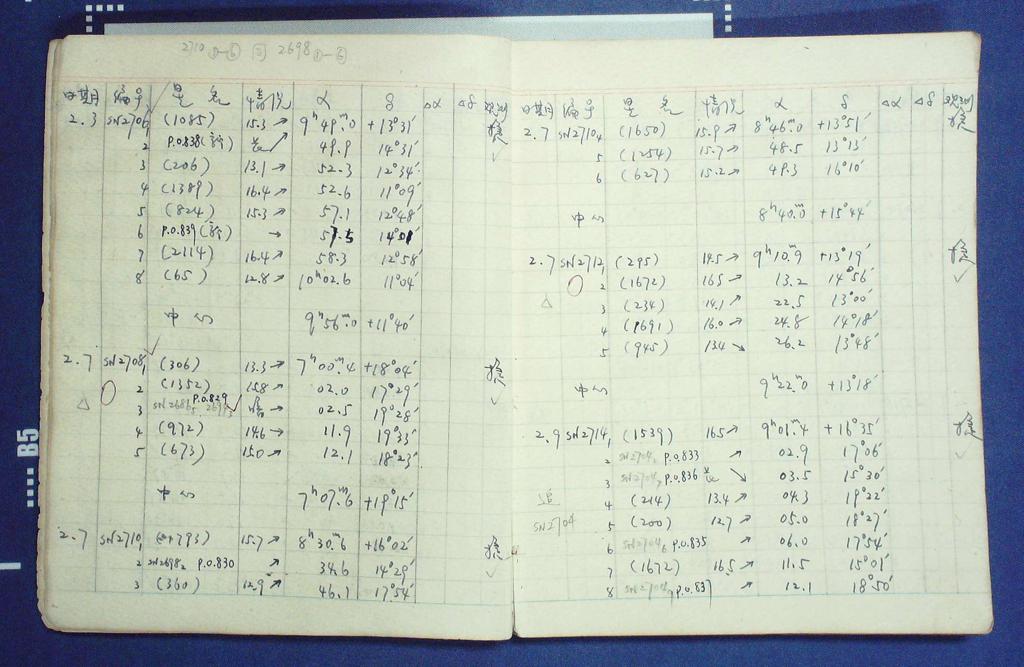 2710 ①-⑥ ② 2698 ①-⑥
日期 编号 星名 情况 α δ Δα Δδ 观测
2.3 SN2706 1 (1085) 15.3 ↗ 9ʰ49ᵐ.0 +13°31′
2 P.0.838(新) ↗ 49.9 14°31′
3 (206) 13.1 ↗ 52.3 12°34′
4 (1389) 16.4 ↗ 52.6 11°09′
5 (824) 15.3 ↗ 57.1 12°48′
6 P.0.839(新) → 57.5 14°01′
7 (2114) 16.4 → 58.3 12°58′
8 (65) 12.8 ↗ 10ʰ02.6 11°04′
中心 9ʰ56ᵐ.0 +11°40′
2.7 SN2708 1 (306) 13.3 → 7ʰ00ᵐ.4 +18°04′
2 (1352) 15.8 → 02.0 17°29′
3 P.0.829 → 02.5 19°28′
4 (972) 14.6 → 11.9 19°33′
5 (673) 15.0 → 12.1 18°23′
中心 7ʰ07ᵐ.6 +19°15′
2.7 SN2710 1 (793) 15.7 ↗ 8ʰ30ᵐ.6 +16°02′
2 SN2698 2 P.0.830 ↗ 34.6 14°29′
3 (360) 12.9 ↗ 46.1 17°54′
日期 编号 星名 情况 α δ Δα Δδ 观测
2.7 SN2710 4 (1650) 15.9 ↗ 8ʰ46ᵐ.0 +13°51′
5 (1254) 15.7 → 48.5 13°13′
6 (627) 15.2 ↗ 49.3 16°10′
中心 8ʰ40ᵐ.0 +15°44′
2.7 SN2712 1 (295) 14.5 ↗ 9ʰ10ᵐ.9 +13°19′
2 (1672) 16.5 ↗ 13.2 14°56′
3 (234) 14.1 ↗ 22.5 13°00′
4 (1691) 16.0 ↗ 24.8 14°18′
5 (945) 13.4 ↘ 26.2 13°48′
中心 9ʰ22ᵐ.0 +13°18′
2.9 SN2714 1 (1539) 16.5 ↗ 9ʰ01ᵐ.4 +16°35′
2 SN2704 P.0.833 → 02.9 17°06′
3 SN2704 P.0.836 ↘ 03.5 15°30′
追 4 (214) 13.4 ↗ 04.3 19°22′
SN2704 5 (200) 12.7 ↗ 05.0 18°27′
6 SN2704 6 P.0.835 ↗ 06.0 17°54′
7 (1672) 16.5 ↗ 11.5 15°01′
8 SN2704 P.0.837 ↗ 12.1 18°50′
B5